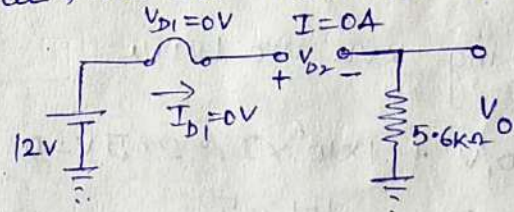 V_D1=0V I=0A
+ V_D2 -
I_D1=0V
12V
5.6kΩ
V_O